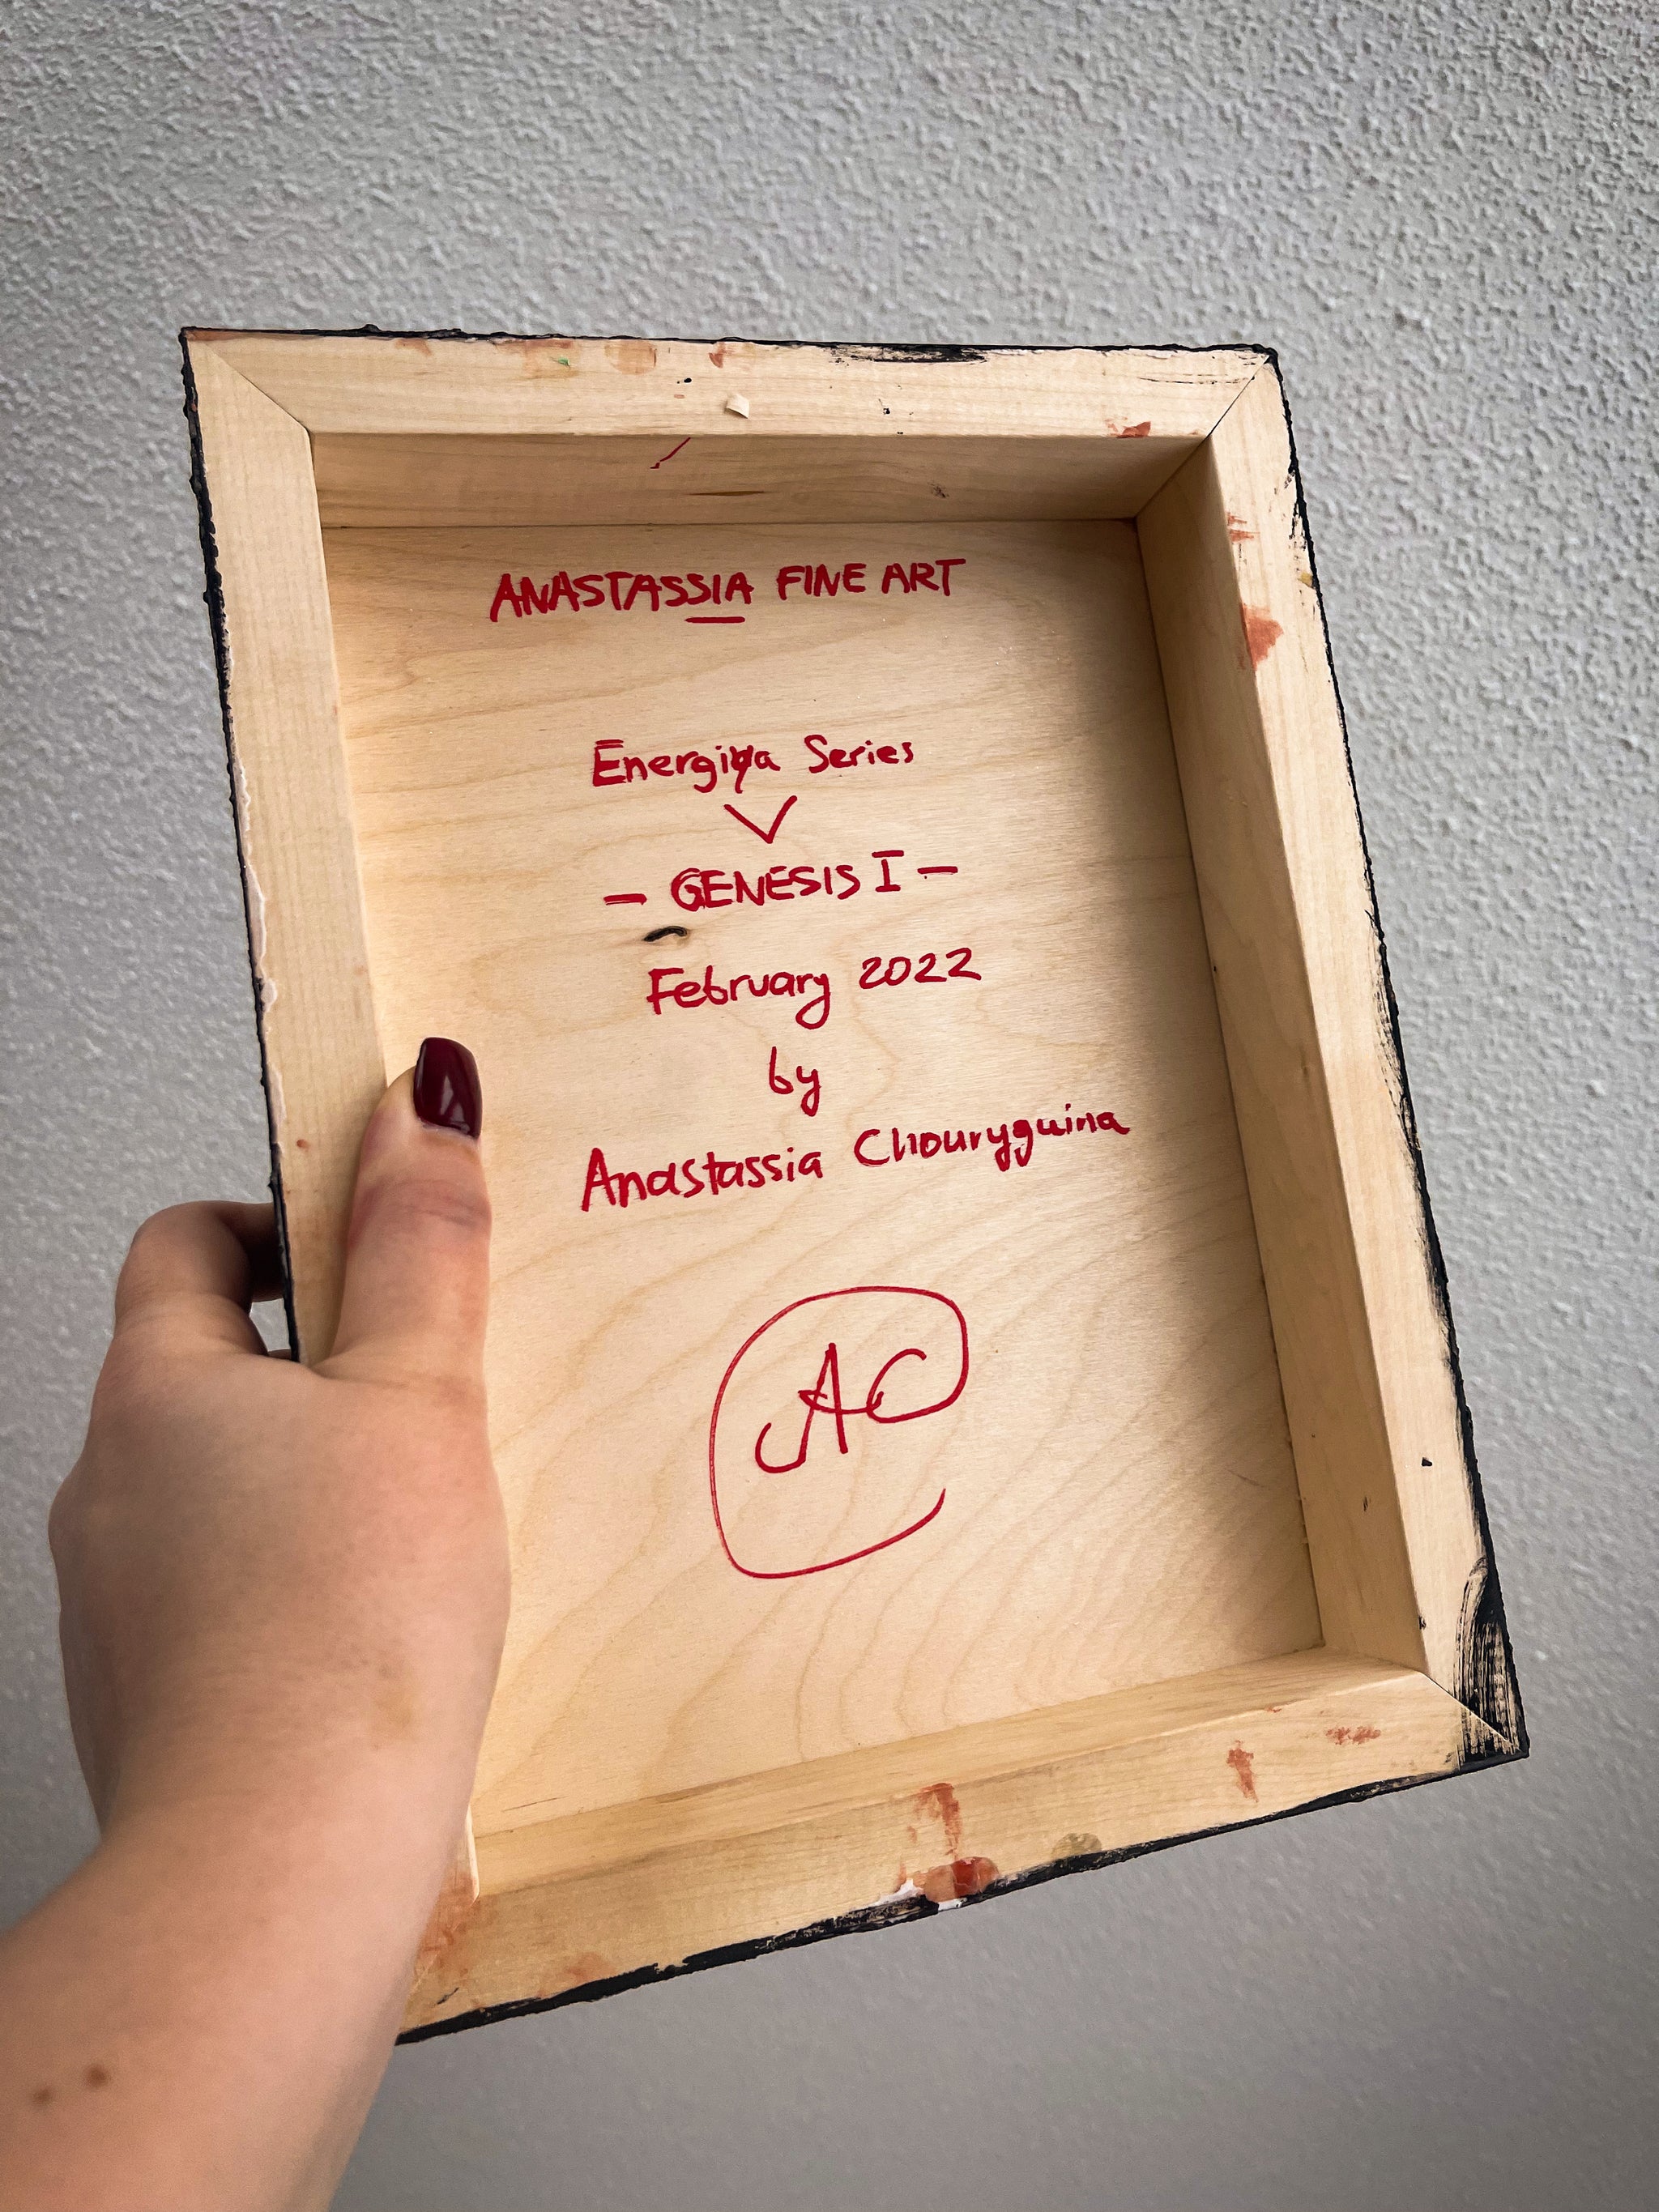 ANASTASSIA FINE ART
Energiya Series
— GENESIS I —
February 2022
by
Anastassia Chouryguina
AC